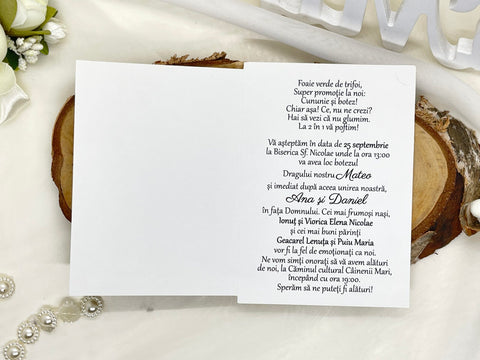 Foaie verde de trifoi,
Super promoție la noi:
Cununie și botez!
Chiar așa! Ce, nu ne crezi?
Hai să vezi că nu glumim.
La 2 în 1 vă poftim!
Vă așteptăm în data de 25 septembrie
la Biserica Sf. Nicolae unde la ora 13:00
va avea loc botezul
Dragului nostru Mateo
și imediat după aceea unirea noastră,
Ana și Daniel
în fața Domnului. Cei mai frumoși nași,
Ionuț și Viorica Elena Nicolae
și cei mai buni părinți
Geacarel Lenuța și Puiu Maria
vor fi la fel de emoționați ca noi.
Ne vom simți onorați să vă avem alături
de noi, la Căminul cultural Câinenii Mari,
începând cu ora 19:00.
Sperăm să ne puteți fi alături!